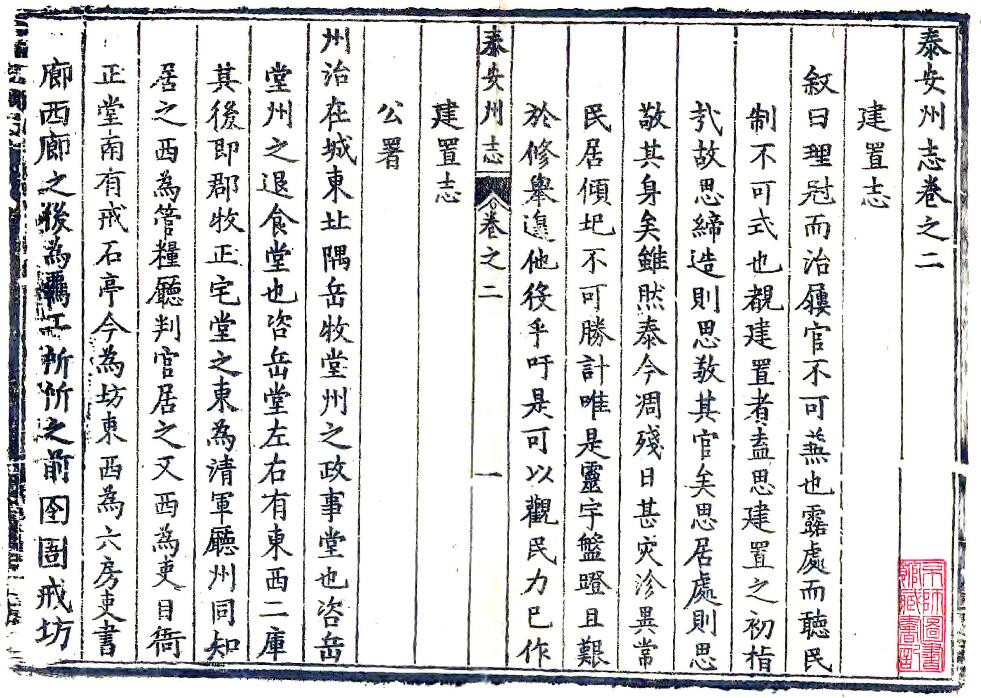 泰安州志卷之二
建置志
叙曰理冠而治屨官不可燕也露處而聽民
制不可式也覩建置者盍思建置之初指
㢤故思締造則思敬其官矣思居處則思
敬其身矣雖然泰今凋殘日甚灾沴異常
民居傾圮不可勝計唯是靈宇盤蹬且艱
於修舉遑他役乎吁是可以觀民力已作
建置志
泰安州志 卷之二 一
公署
州治在城東北隅岳牧堂州之政事堂也咨岳
堂州之退食堂也咨岳堂左右有東西二庫
其後即郡牧正宅堂之東為清軍廳州同知
居之西為管糧廳判官居之又西為吏目衙
正堂南有戒石亭今為坊東西為六房吏書
廊西廊之後為工所所之前囹圄戒坊
京師圖書館藏書記